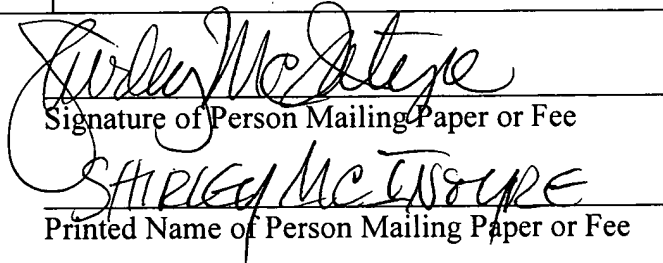 Shirley McIntyre
Signature of Person Mailing Paper or Fee
SHIRLEY MCINTYRE
Printed Name of Person Mailing Paper or Fee